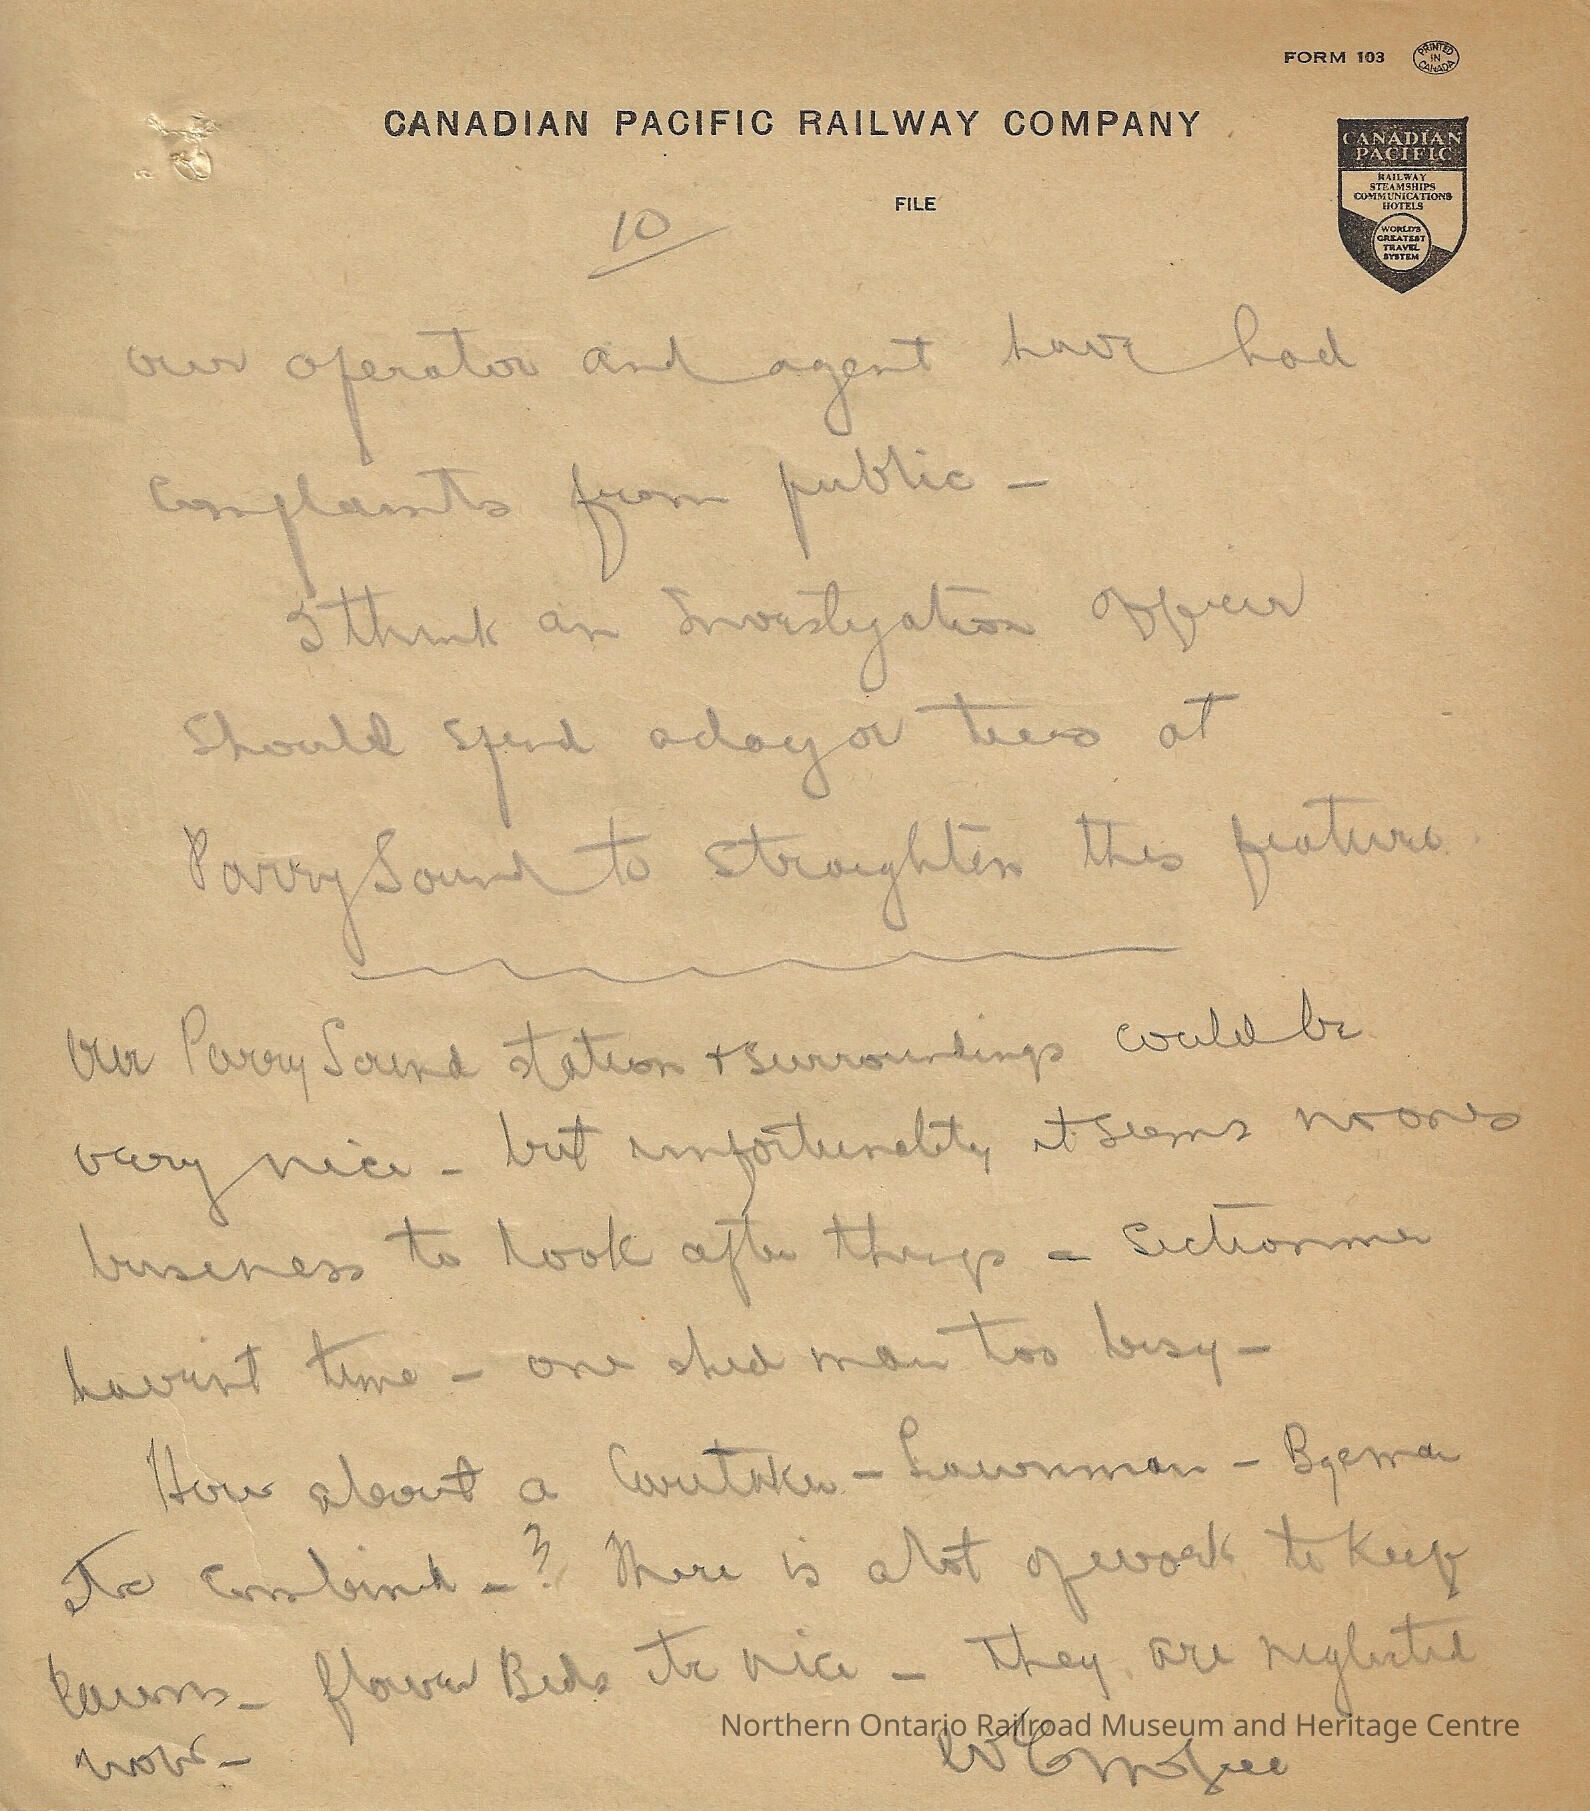 FORM 103 PRINTED IN CANADA
CANADIAN PACIFIC RAILWAY COMPANY
CANADIAN
PACIFIC
RAILWAY
STEAMSHIPS
COMMUNICATIONS
HOTELS
WORLD'S
GREATEST
TRAVEL
SYSTEM
FILE
10
our operator and agent have had
Complaints from public -
I think an Investigation officer
Should spend a day or two at
Parry Sound to straighten this feature.
Our Parry Sound station + surroundings could be
very nice - but unfortunately it seems no ones
business to look after things - Sectionmen
havent time - one shed man too busy -
How about a Caretaker - Lawnman -
Etc combined - ? There is a lot of work to keep
lawns - flower Beds etc nice - They are neglected
now -
Northern Ontario Railroad Museum and Heritage Centre